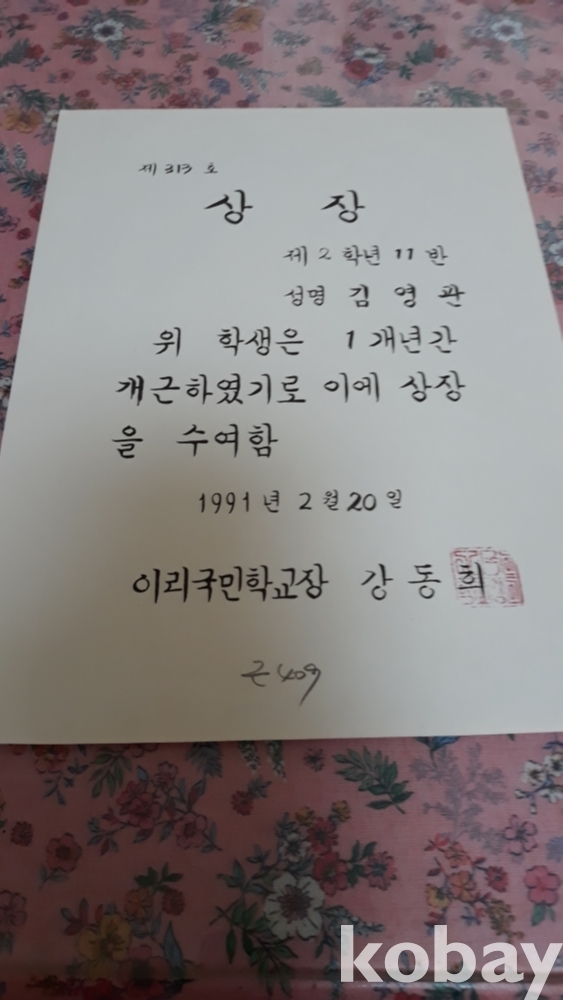 제 313 호
상 장
제 2 학년 11 반
성명 김 영 관
위 학생은 1 개년간
개근하였기로 이에 상장
을 수여함
1991 년 2 월 20 일
이리국민학교장 강 동 희
근 409
kobay